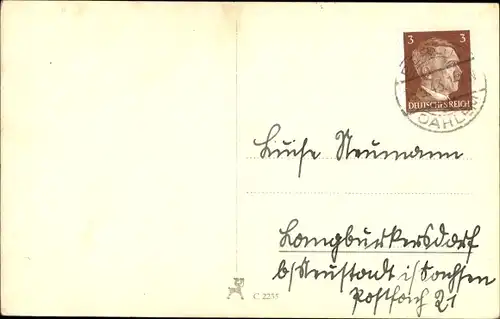 3 3
DEUTSCHES REICH
DAHLEN
Luise Neumann
Langburkersdorf
b/Neustadt i/Sachsen
Postfach 21
C 2235